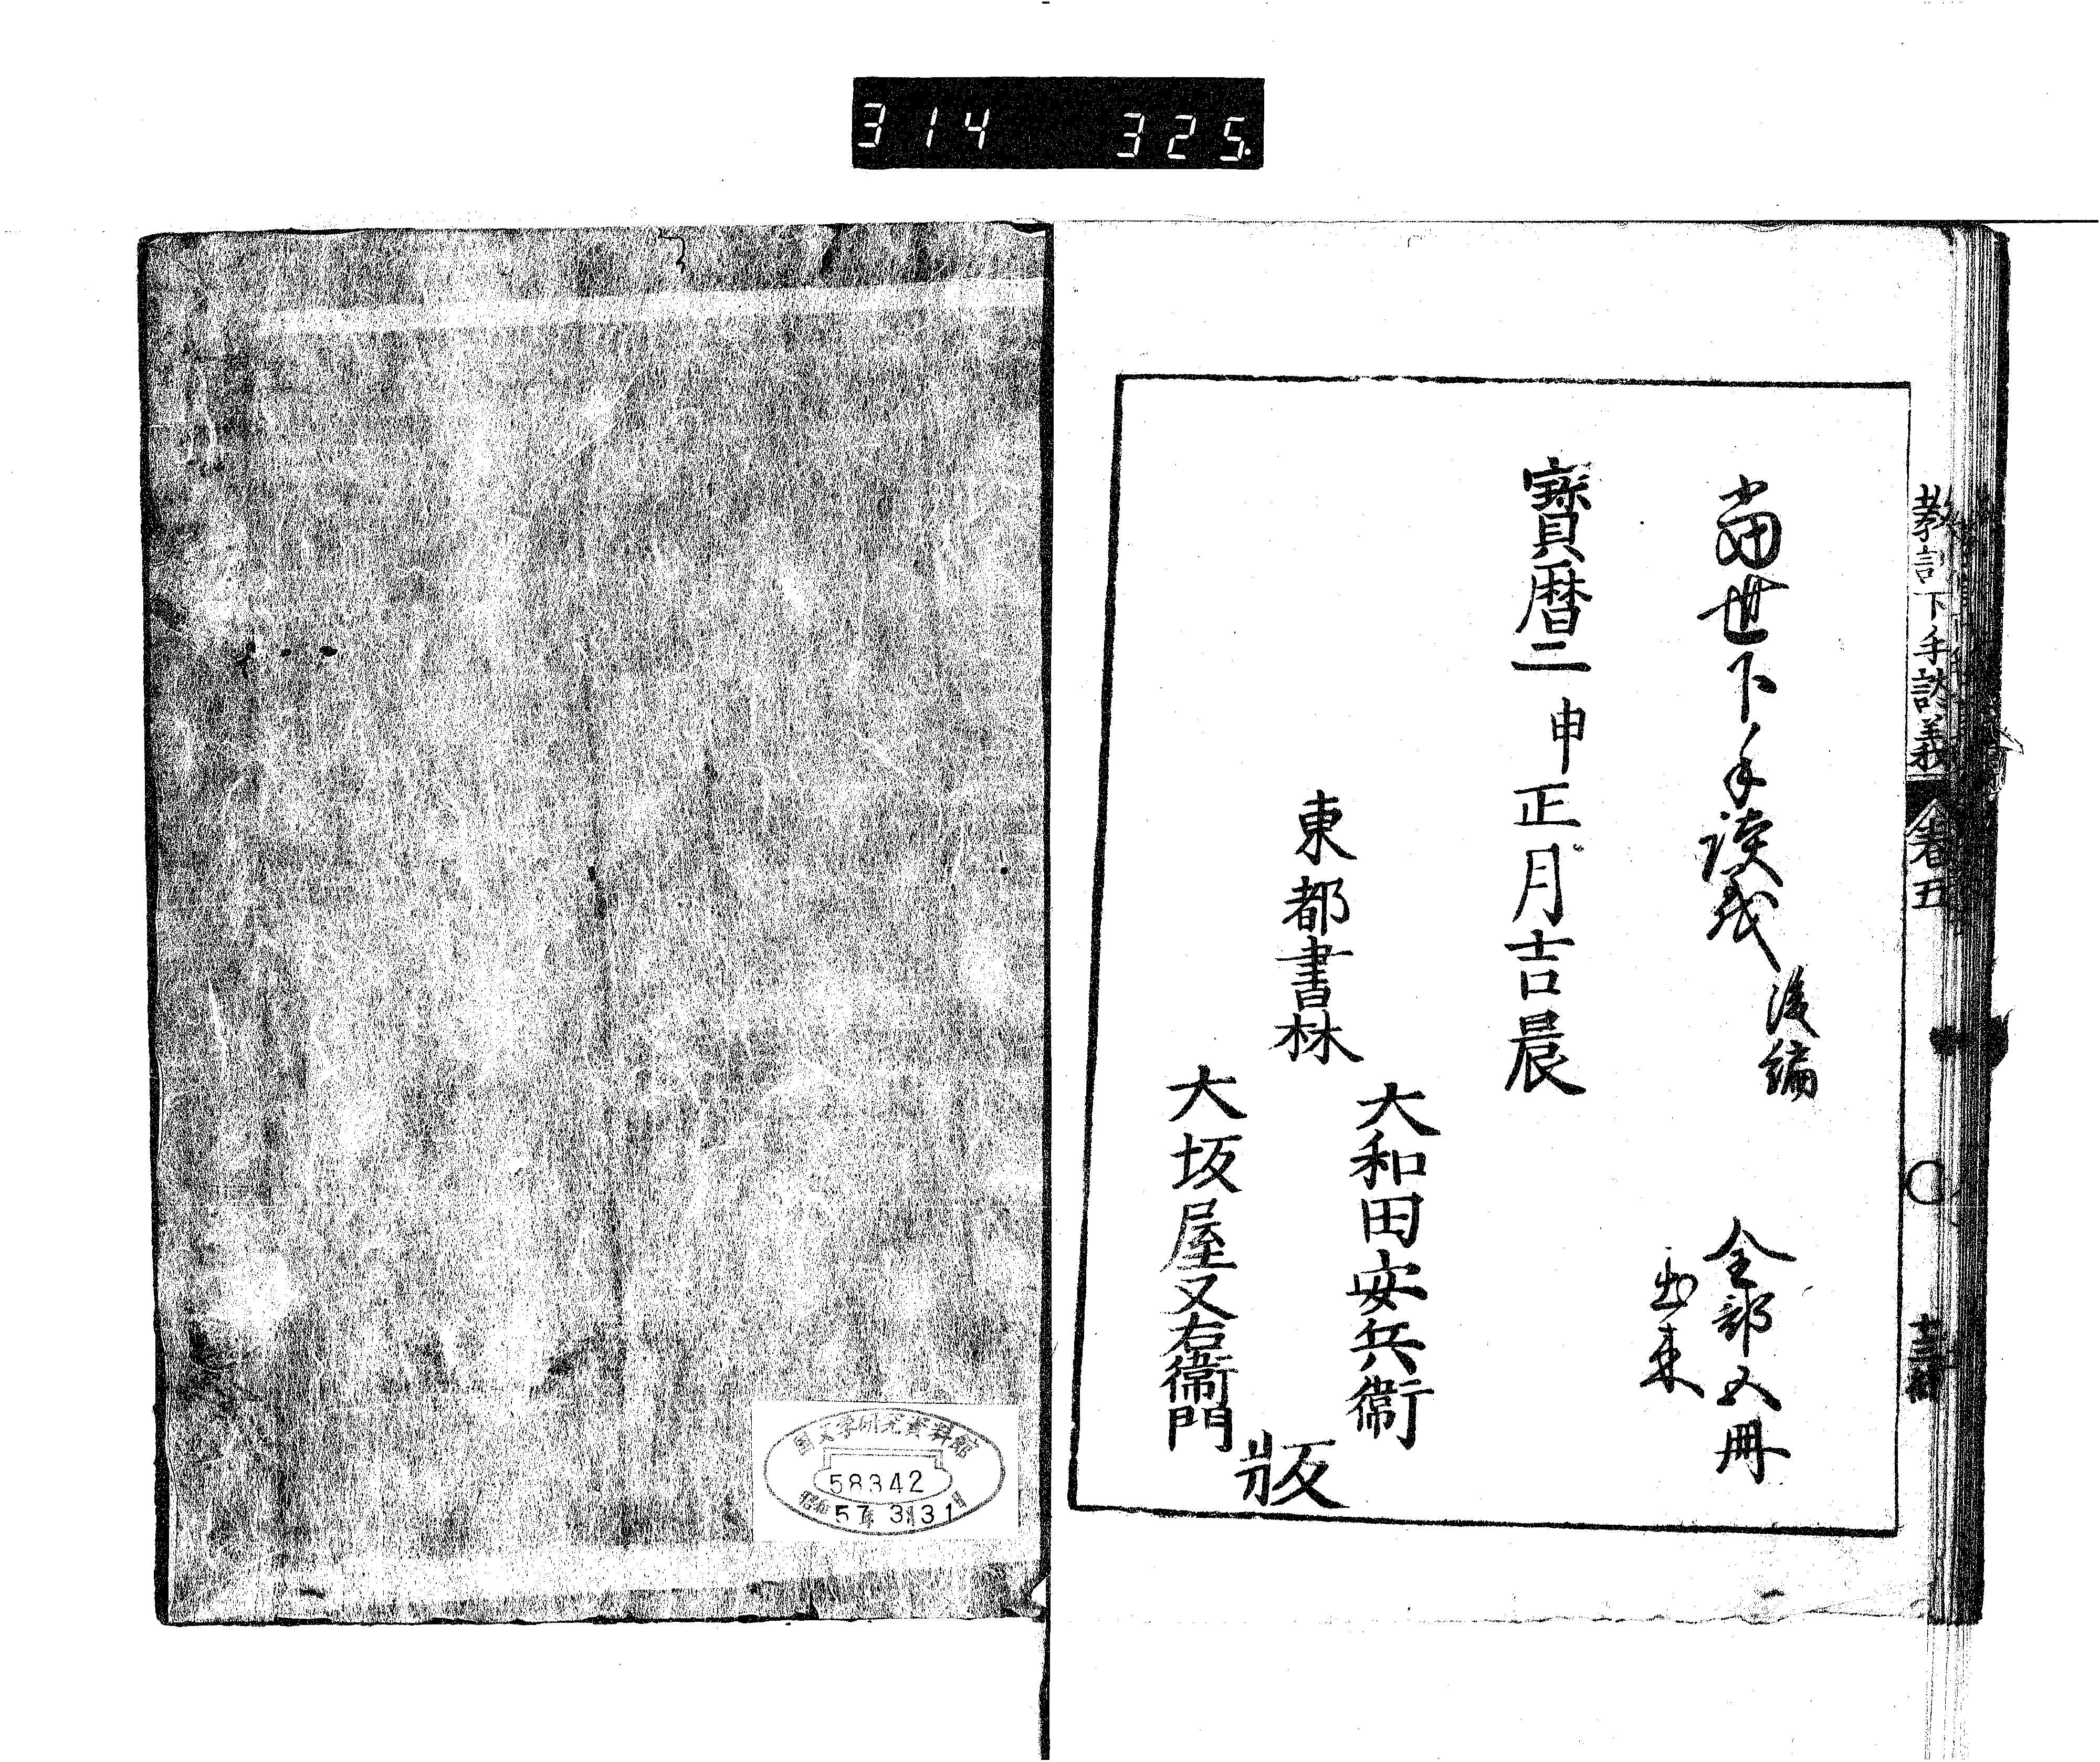 314 325.
教訓下手談義 巻五
當世下手談義 後編 全部五冊
出来
寳暦二申正月吉辰
東都書林
大和田安兵衞
大坂屋又右衞門
版
国文学研究資料館
58342
昭和57年3月31日